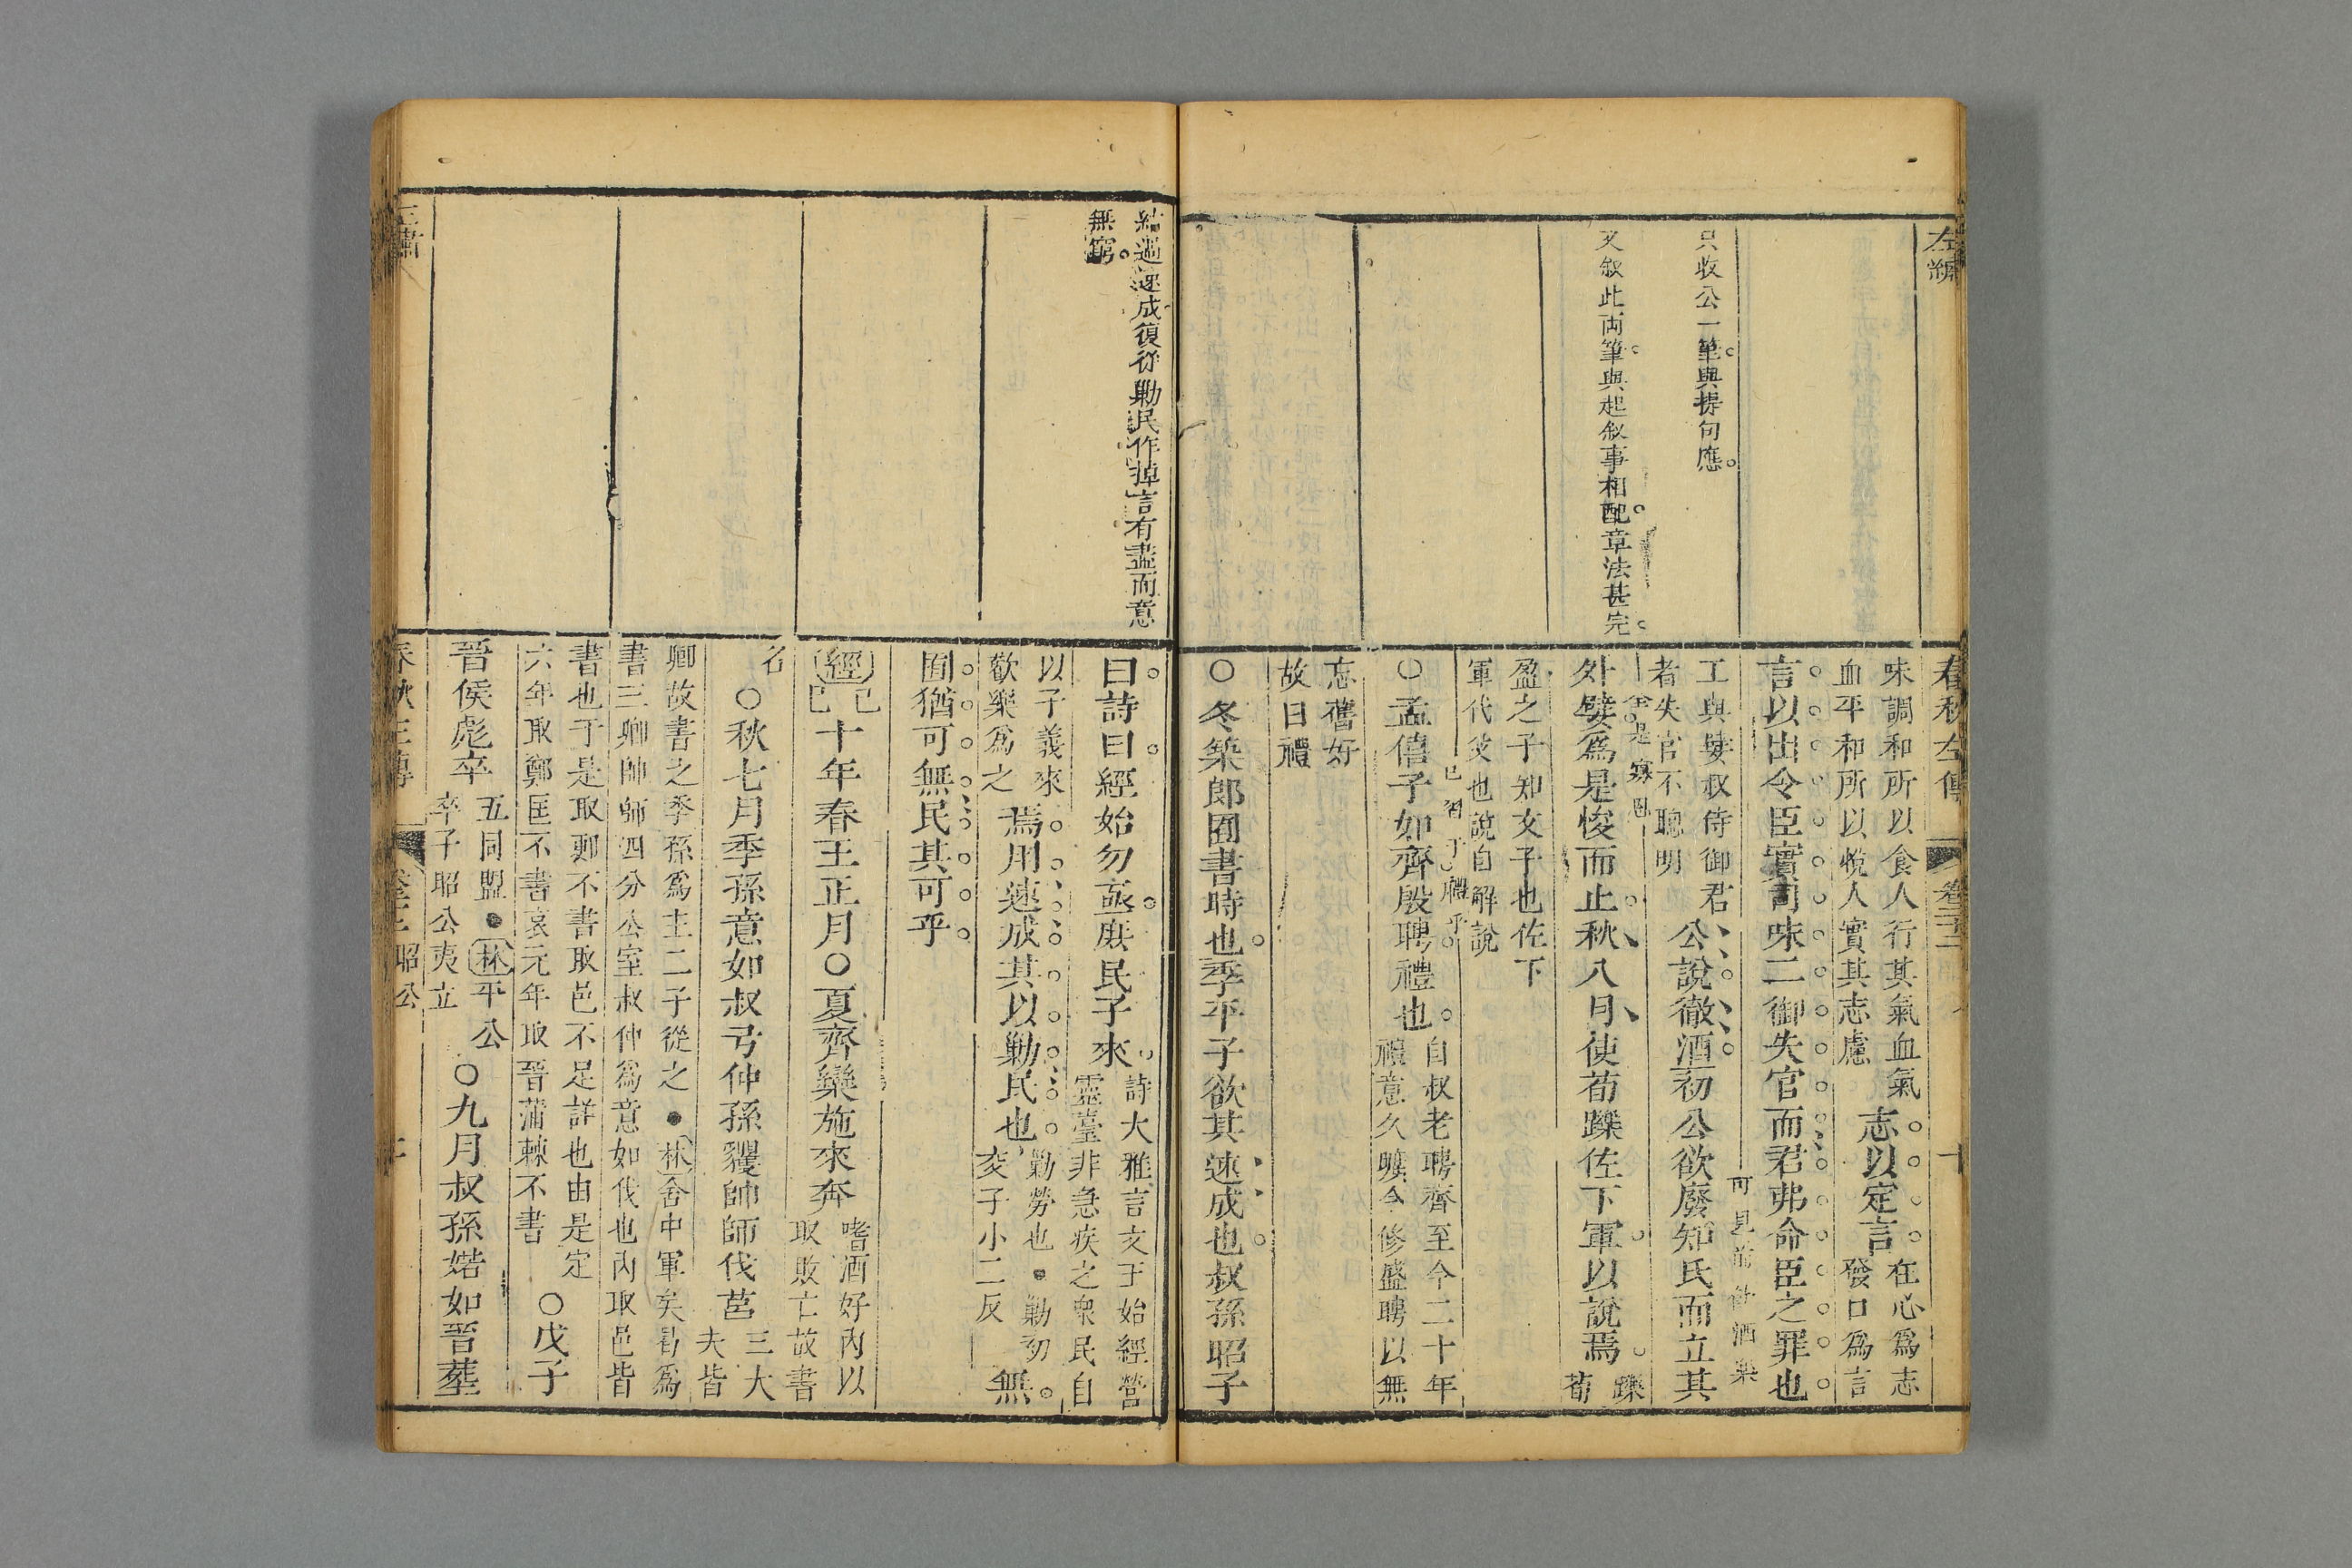 左繡
春秋左傳
卷二十二
十
只收公一筆與提句應
又敘此兩筆與起敘事相配章法甚完
味調和所以食人行其氣血氣
血平和所以悅人實其志慮
志以定言
在心爲志
發口爲言
言以出令臣實司味二御失官而君弗命臣之罪也
工與嬖叔侍御君
者失官不聰明
公說徹酒初公欲廢知氏而立其
可見前飲酒樂
外嬖爲是悛而止秋八月使荀躒佐下軍以說焉
躒
荀
盈之子知文子也佐下
軍代父也說自解說
○孟僖子如齊殷聘禮也
自叔老聘齊至今二十年
禮意久曠今修盛聘以無
忘舊好
故曰禮
○冬築郎囿書時也季平子欲其速成也叔孫昭子
結過速成復從勦民作掉言有盡而意
無窮
曰詩曰經始勿亟庶民子來
詩大雅言文王始經營
靈臺非急疾之衆民自
以子義來
歡樂爲之
焉用速成其以勦民也
勦勞也●勦初
交子小二反
無
囿猶可無民其可乎
經
己
巳
十年春王正月○夏齊欒施來奔
嗜酒好內以
取敗亡故書
名
○秋七月季孫意如叔弓仲孫貜帥師伐莒
三大
夫皆
卿故書之季孫爲主二子從之●林舍中軍矣曷爲
書三卿帥師四分公室叔仲爲意如伐也內取邑皆
書也于是取鄆不書取邑不足詳也由是定
六年取鄭匡不書哀元年取晉蒲棘不書
○戊子
晉侯彪卒
五同盟●林平公
卒子昭公夷立
○九月叔孫婼如晉葬